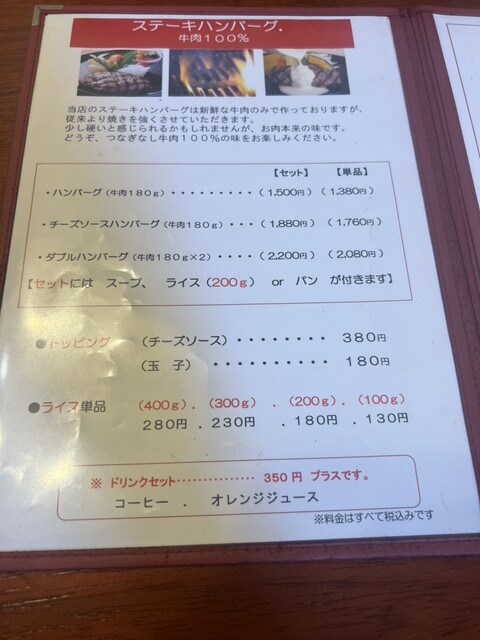 ステーキハンバーグ.
牛肉１００％
当店のステーキハンバーグは新鮮な牛肉のみで作っておりますが、
従来より焼きを強くさせていただきます。
少し硬いと感じられるかもしれませんが、お肉本来の味です。
どうぞ、つなぎなし牛肉１００％の味をお楽しみください。
【セット】 【単品】
・ハンバーグ（牛肉１８０ｇ）・・・・・・・・・（１,５００円）（１,３８０円）
・チーズソースハンバーグ（牛肉１８０ｇ）・・・（１,８８０円）（１,７６０円）
・ダブルハンバーグ（牛肉１８０ｇ×２）・・・・（２,２００円）（２,０８０円）
【セットには スープ、 ライス（２００ｇ） or パン が付きます】
●トッピング （チーズソース）・・・・・・・・ ３８０円
（玉 子）・・・・・・・・・・ １８０円
●ライス単品 （４００ｇ）．（３００ｇ） ．（２００ｇ）．（１００ｇ）
２８０円 ．２３０円 ．１８０円 ．１３０円
※ ドリンクセット・・・・・・・・・・・・・・・ ３５０ 円 プラスです。
コーヒー ． オレンジジュース
※料金はすべて税込みです